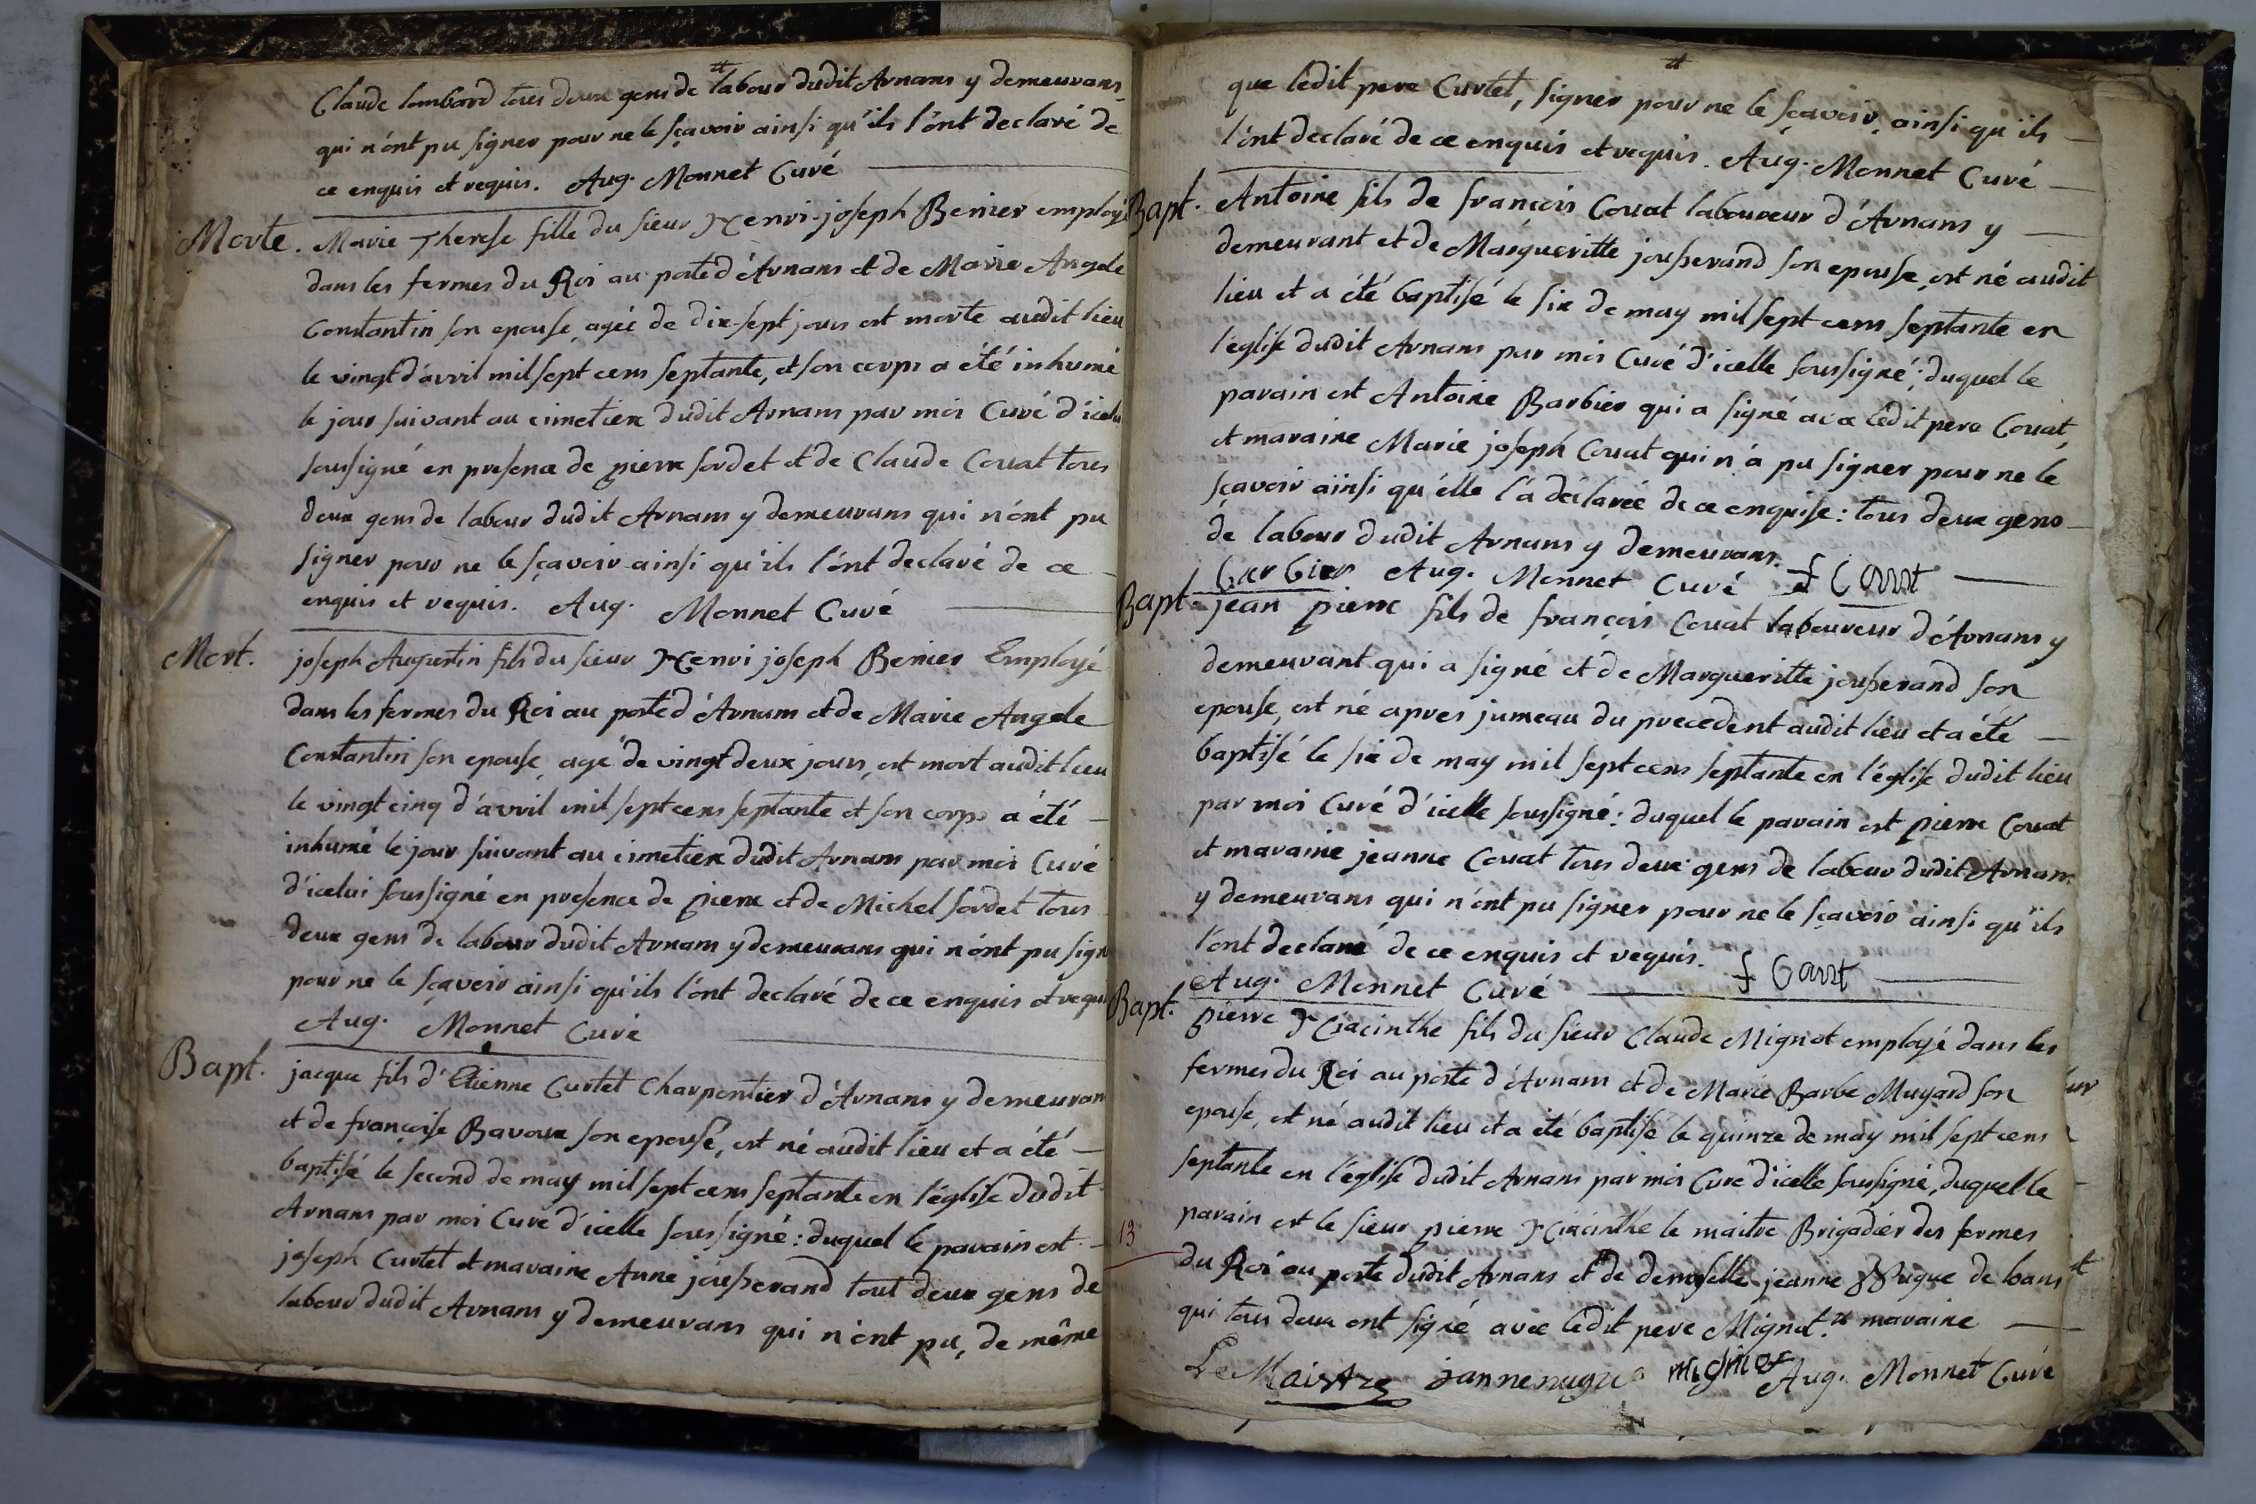 Claude lombard tous deux gens de labour dudit Arnans y demeurans
qui n'ónt pu signer pour ne le sçavoir ainsi qu'ils l'ónt declaré de
ce enquis et requis. Aug. Monnet Curé
Morte. Marie Therese fille du sieur Henri-joseph Benier employé
dans les fermes du Roi au poste d'Arnans et de Marie Angele
Constantin son epouse, agée de dix-sept jours est morte audit lieu
le vingt d'avril mil sept cens septante, et son corps a été inhumé
le jour suivant au cimetiere dudit Arnans par moi Curé d'icelui
soussigné en presence de pierre sordet et de Claude Couat tous
deux gens de labour dudit Arnans y demeurans qui n'ónt pu
signer pour ne le sçavoir ainsi qu'ils l'ónt declaré de ce
enquis et requis. Aug. Monnet Curé
Mort. joseph Augustin fils du sieur Henri joseph Benier Employé
dans les fermes du Roi au poste d'Arnans et de Marie Angele
Constantin son epouse, agé de vingt deux jours, est mort audit lieu
le vingt cinq d'avril mil sept cens septante et son corps a été
inhumé le jour suivant au cimetiere dudit Arnans par moi Curé
d'icelui soussigné en presence de pierre et de Michel sordet tous
deux gens de labour dudit Arnans y demeurans qui n'ónt pu sign
pour ne le sçavoir ainsi qu'ils l'ónt declaré de ce enquis et requi
Aug. Monnet Curé
Bapt. jacque fils d'Etienne Curtet Charpentier d'Arnans y demeuran
et de françoise Bavoux son epouse, est né audit lieu et a été
baptisé le second de may mil sept cens septante en l'église dudit
Arnans par moi Curé d'icelle soussigné: duquel le parain est
joseph Curtet et maraine Anne jouserand tout deux gens de
labour dudit Arnans y demeurans qui n'ont pu, de même
que ledit pere Curtet, signer pour ne le sçavoir, ainsi qu'ils
l'ónt declaré de ce enquis et requis. Aug. Monnet Curé
Bapt. Antoine fils de françois Couat laboureur d'Arnans y
demeurant et de Margueritte jouserand son epouse, est né audit
lieu et a été baptisé le six de may mil sept cens septante en
l'église dudit Arnans par moi Curé d'icelle soussigné; duquel le
parain est Antoine Barbier qui a signé avec ledit pere Couat,
et maraine Marie joseph Couat qui n'a pu signer pour ne le
sçavoir ainsi qu'elle l'a déclarée de ce enquise: tous deux gens
de labour dudit Arnans y demeurans.
barbier Aug. Monnet Curé f Couat
Bapt. jean pierre fils de françois Couat laboureur d'Arnans y
demeurant qui a signé et de Margueritte jouserand son
epouse, est né apres jumeau du precedent audit lieu et a été
baptisé le six de may mil sept cens septante en l'église dudit lieu
par moi Curé d'icelle soussigné: duquel le parain est pierre Couat
et maraine jeanne Couat tous deux gens de labour dudit Arnans
y demeurans qui n'ónt pu signer pour ne le sçavoir ainsi qu'ils
l'ont declaré de ce enquis et requis. f Couat
Aug. Monnet Curé
Bapt. pierre Hiacinthe fils du sieur Claude Mignot employé dans les
fermes du Roi au poste d'Arnans et de Marie Barbe Muyard son
epouse, est né audit lieu et a été baptisé le quinze de may mil sept cens
septante en l'église dudit Arnans par moi Curé d'icelle soussigné, duquel le
parain est le sieur pierre Hiacinthe le maitre Brigadier des fermes
13
du Roi au poste dudit Arnans et de demoiselle jeanne Nugue de loans
qui tous deux ont signé avec ledit pere Mignot. maraine
Le Maistre janne nugue mignot Aug. Monnet Curé